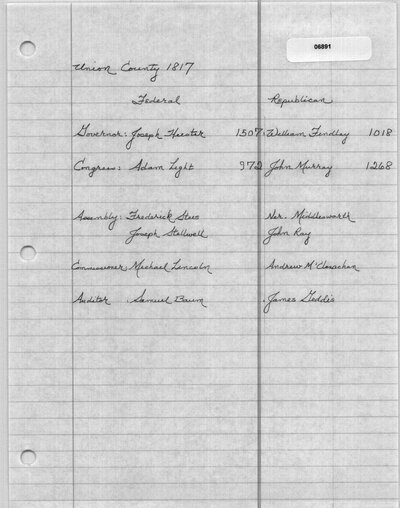 06891
Union County 1817
Federal Republican
Governor: Joseph Hiester 1507 William Findlay 1018
Congress: Adam Light 972 John Murray 1268
Assembly: Frederick Stees Ner. Middleswarth
Joseph Stillwell John Ray
Commissioner: Michael Lincoln Andrew McClenachan
Auditor: Samuel Baum James Geddis